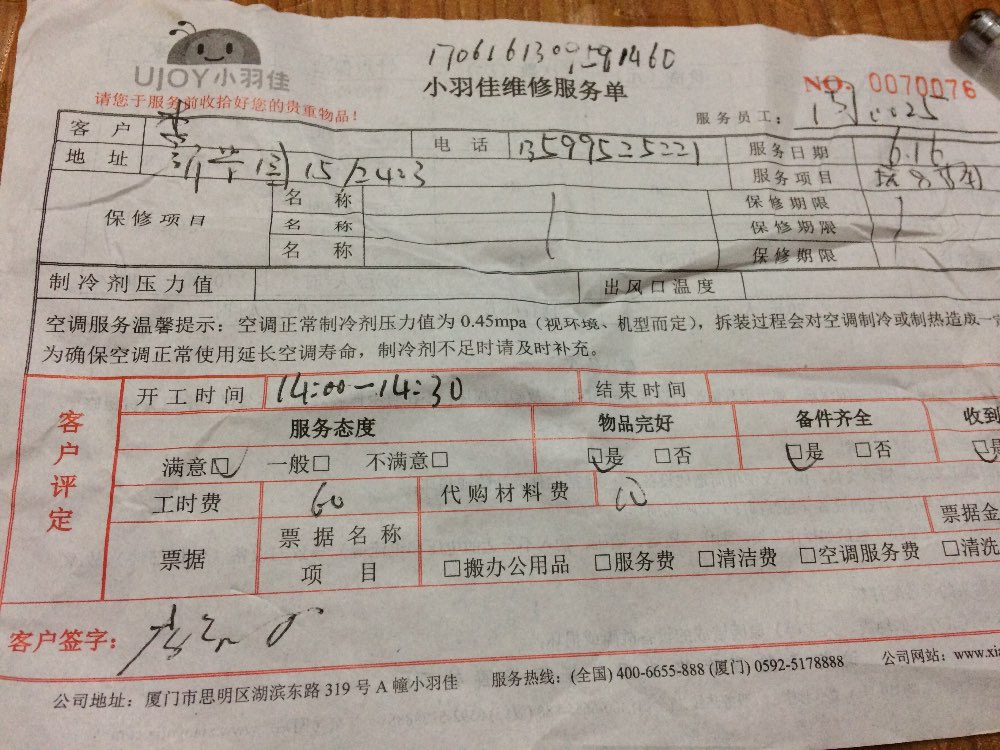 17061613095981460
UJOY小羽佳
小羽佳维修服务单
NO: 0070076
请您于服务前收拾好您的贵重物品!
服务员工:
客户
电话 13599525221 服务日期 6.16
地址 15/2403 服务项目
保修项目 名称 保修期限
名称 保修期限
名称 保修期限
制冷剂压力值 出风口温度
空调服务温馨提示:空调正常制冷剂压力值为0.45mpa(视环境、机型而定),拆装过程会对空调制冷或制热造成一
为确保空调正常使用延长空调寿命,制冷剂不足时请及时补充。
客户评定
开工时间 14:00-14:30 结束时间
服务态度 物品完好 备件齐全 收到
满意□ 一般□ 不满意□ □是 □否 □是 □否 □是
工时费 60 代购材料费 10
票据 票据名称 票据金
项目 □搬办公用品 □服务费 □清洁费 □空调服务费 □清洗
客户签字:
公司地址:厦门市思明区湖滨东路319号A幢小羽佳 服务热线:(全国) 400-6655-888 (厦门) 0592-5178888 公司网站:www.xia